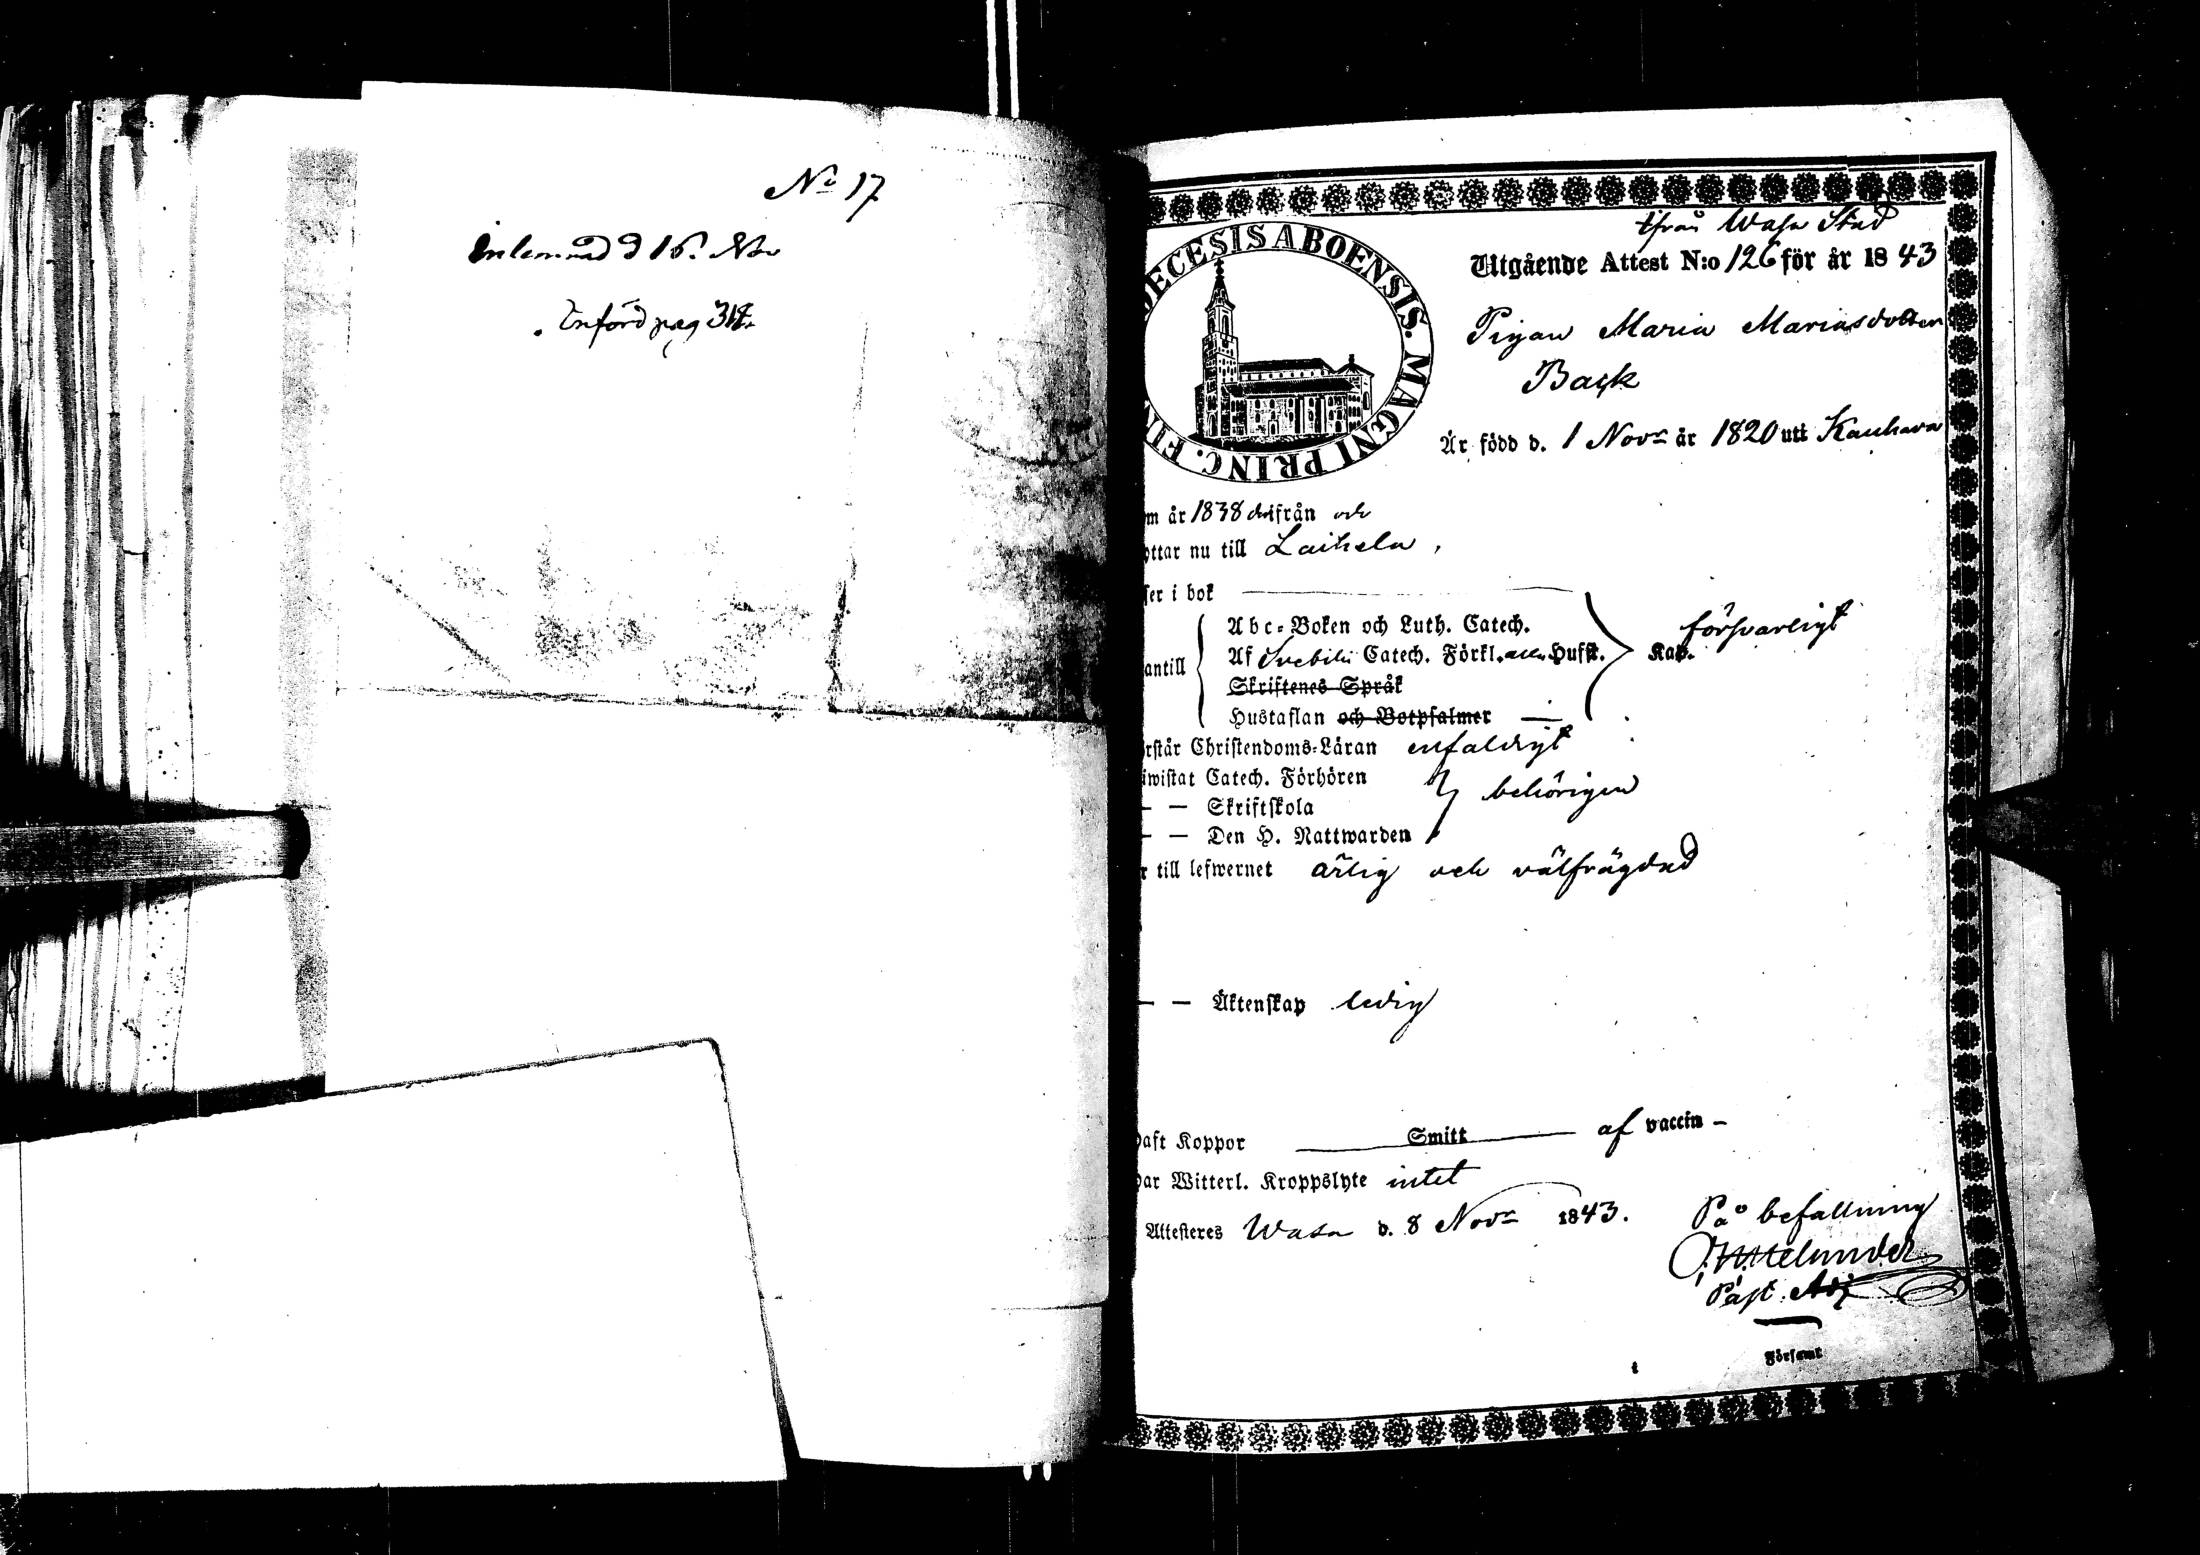 No 17
Inlemnad d 16. Nov
Införd pag 317.
DECESIS ABOENSIS. MAGNI PRINC. FIN
ifrån Wasa Stad
Utgående Attest N:o 126 för år 1843
Pigan Maria Mariasdotter
Back
Är född d. 1 Novr år 1820 uti Kauhava
m år 1838 derifrån och
ottar nu till Laihela,
ser i bok
Abc-Boken och Luth. Catech.
försvarligt
antill
Af Svebilii Catech. Förkl. Husst. Kap.
Skriftenes Språk
Hustaflan och Botpsalmer
örstår Christendoms-Läran enfaldigt
iwistat Catech. Förhören
behörigen
— — Skriftskola
— — Den H. Nattwarden
r till lefwernet ärlig och välfrägdad
— — Äktenskap ledig
haft Koppor Smitt af vaccin
har Witterl. Kroppslyte intet
Attesteres Wasa d. 8 Novr 1843.
På befallning
Past. Adj
Församt